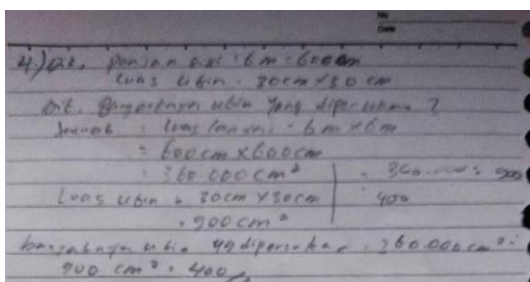 No
Date
4.) Dik. panjan sisi : 6 m = 600cm
luas ubin = 30cm x 30 cm
Dit. Banyaknya ubin yang diperlukan ?
Jawab : luas lantai = 6m x 6m
= 600cm x 600cm
= 360.000 cm² : 360.000 : 900
Luas ubin = 30cm x 30cm : 400
= 900 cm²
banyaknya ubin yg diperlukan = 360.000 cm² :
900 cm² = 400